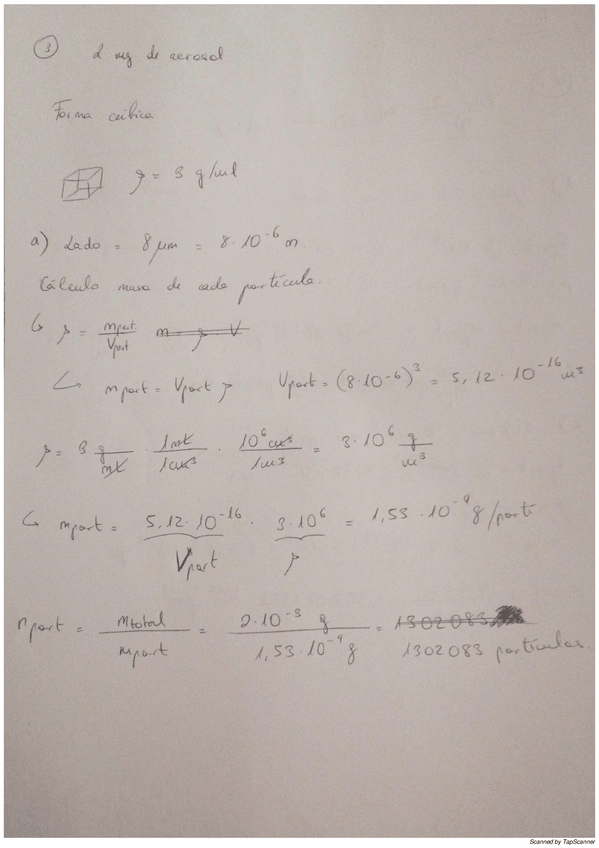 3 2 mg de aerosol
Forma cúbica
ρ = 3 g/ml
a) Lado = 8 μm = 8·10⁻⁶ m.
Cálculo masa de cada partícula.
↳ ρ = mpart. / Vpart m = ρ V
↳ mpart = Vpart ρ Vpart = (8·10⁻⁶)³ = 5,12·10⁻¹⁶ m³
ρ = 3 g/ml · 1ml/1cm³ · 10⁶cm³/1m³ = 3·10⁶ g/m³
↳ mpart = 5,12·10⁻¹⁶ · 3·10⁶ = 1,53·10⁻⁹ g/part.
Vpart ρ
npart = mtotal / mpart = 2·10⁻³ g / 1,53·10⁻⁹ g = 1302083
1302083 partículas.
Scanned by TapScanner